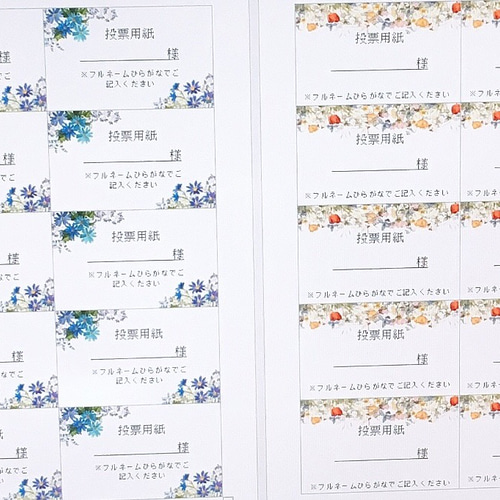 様
※フルネームひらがなでご
記入ください
投票用紙
様
※フルネームひらがなでご
記入ください
投票用紙
様
※フルネームひらがなでご
記入ください
投票用紙
様
※フルネームひらがなでご
記入ください
投票用紙
様
※フルネームひらがなでご
記入ください
投票用紙
様
※フルネームひらがなでご記入ください
投票用紙
様
※フルネームひらがなでご記入ください
投票用紙
様
※フルネームひらがなでご記入ください
投票用紙
様
※フルネームひらがなでご記入ください
投票用紙
様
※フルネームひらがなでご記入ください